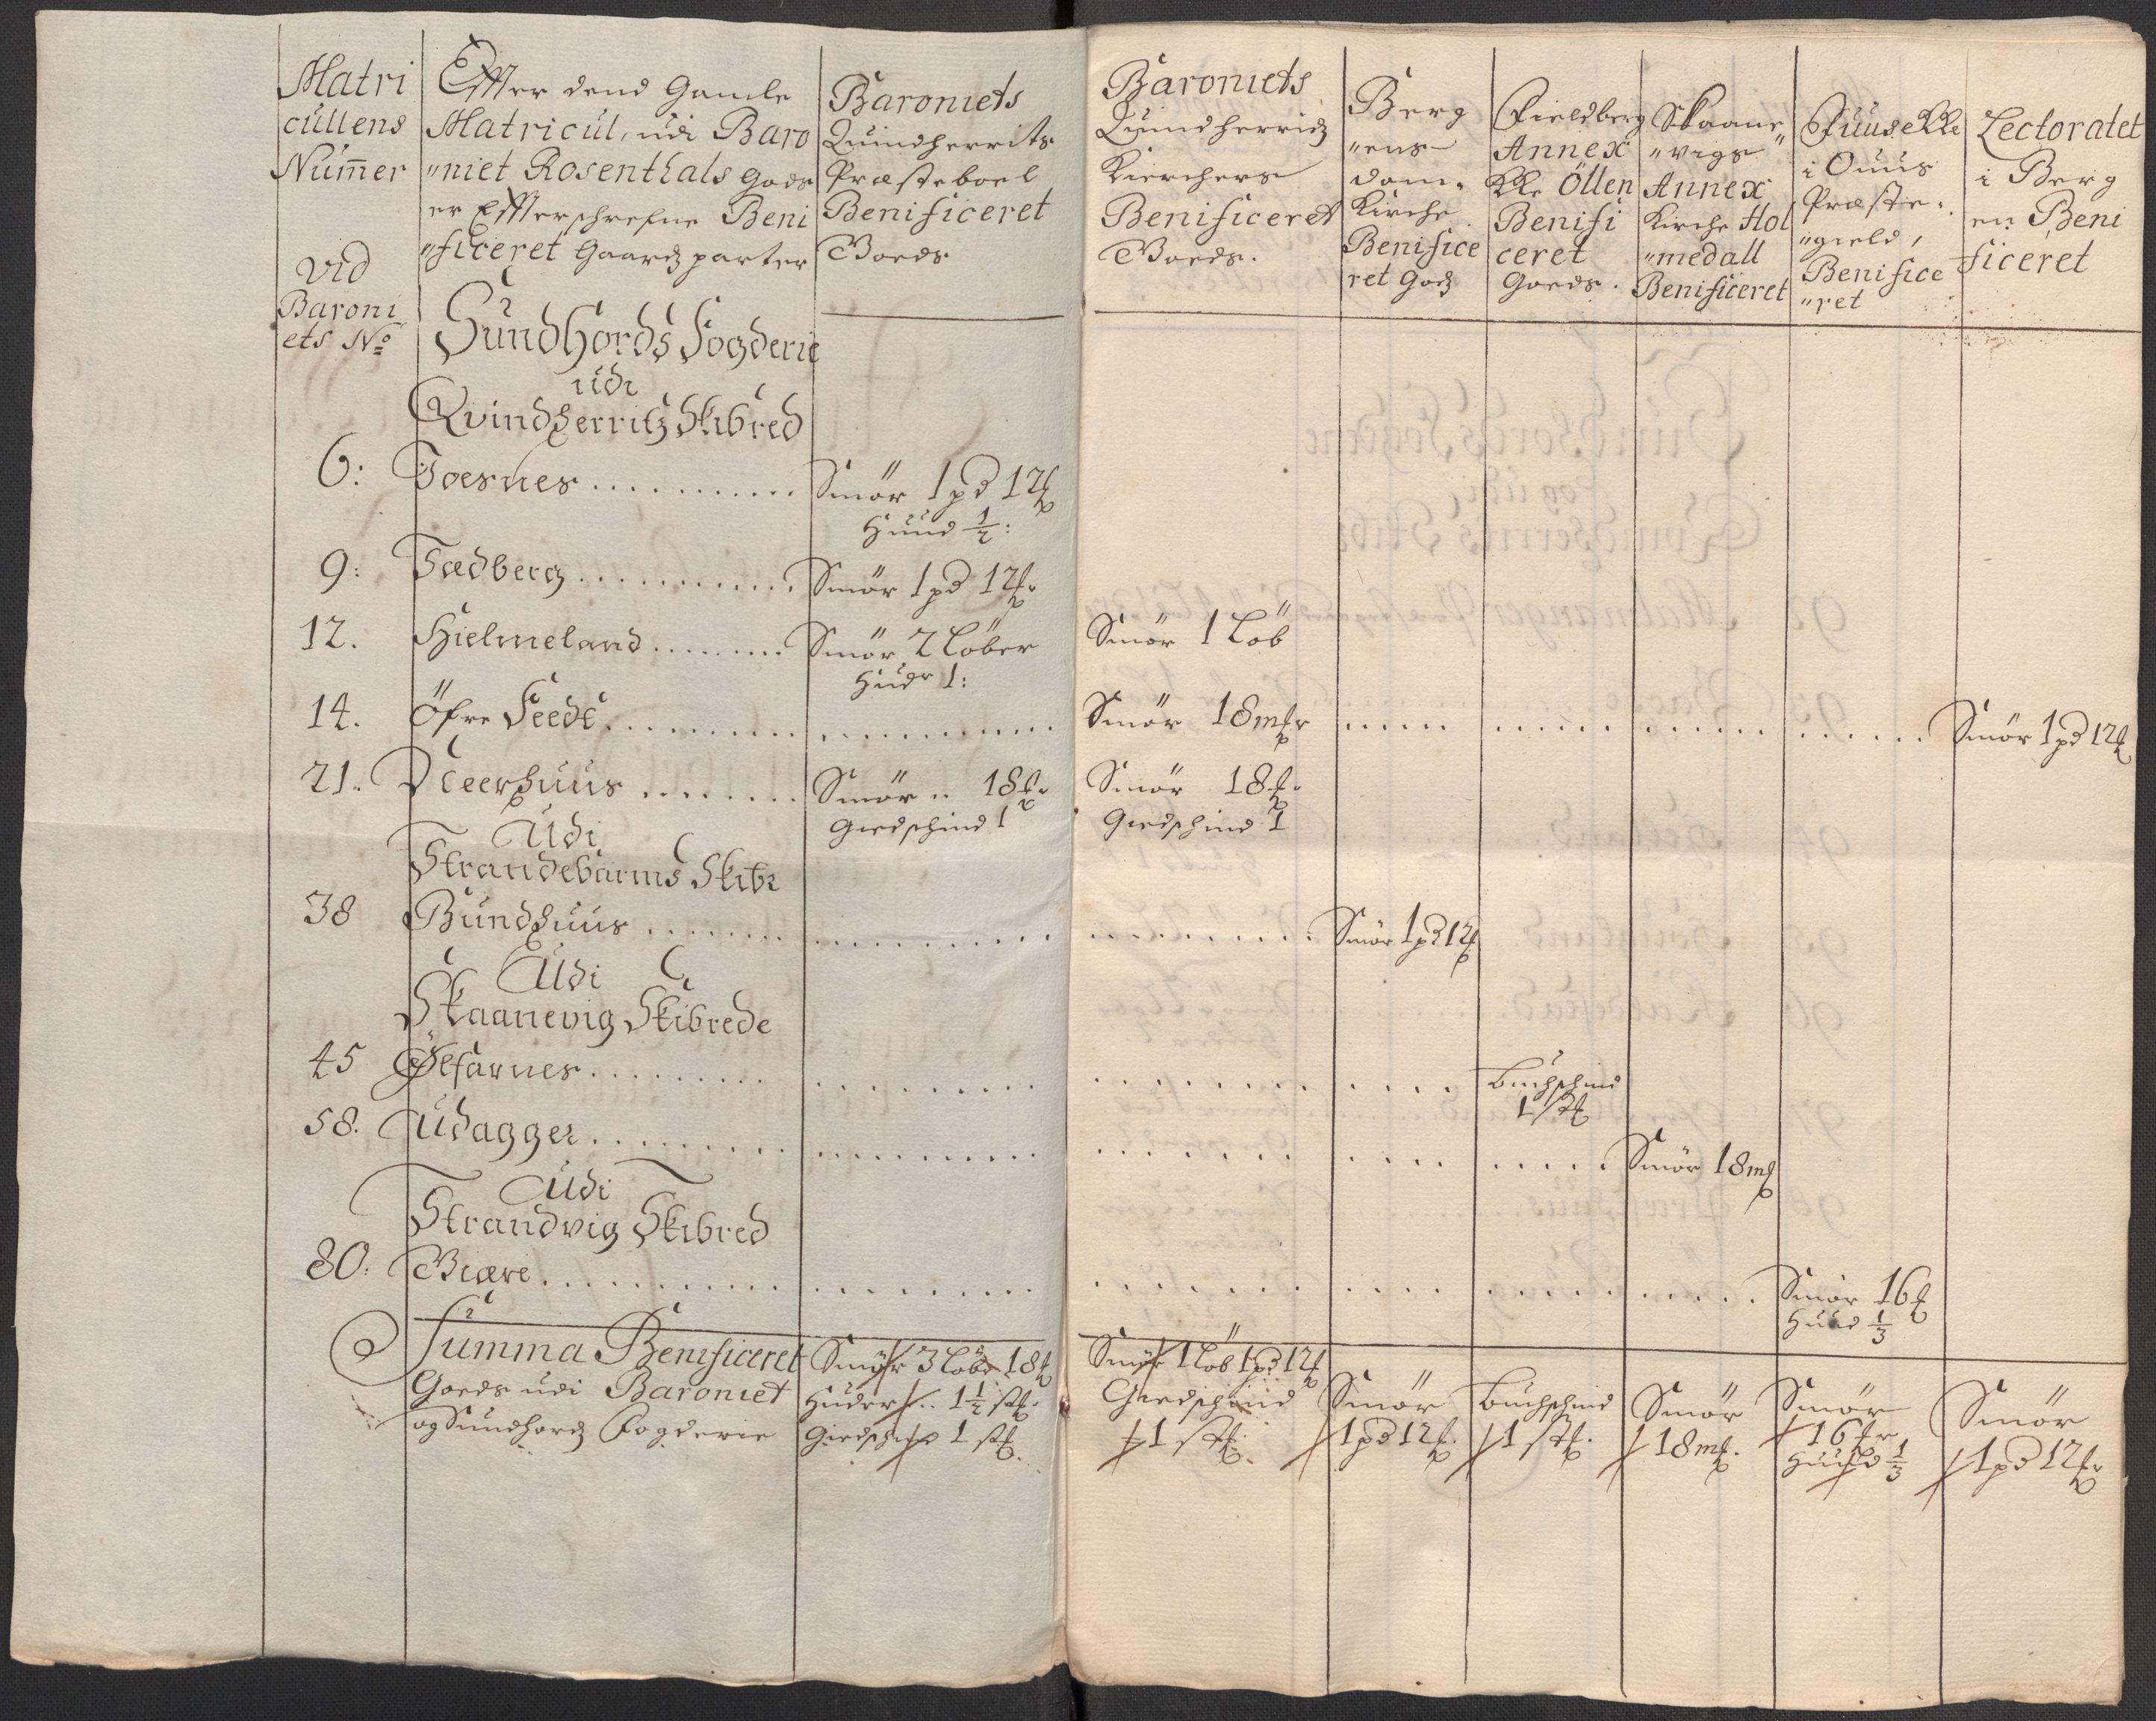 Matri
cullens
Nummer
vid
Baroni
ets No
Effter dend Gamle
Matricul, udi Baro
"niet Rosenthals Gods
er Effterschrefne Beni
"ficeret Gaardz parter
Baroniets
Quindherrits
Præsteboel
Benificeret
Goeds
Baroniets
Quindherridz
Kierchers
Benificeret
Goeds.
Berg
"ens
Dom.
Kirche
Benifice
ret Godz
Fieldberg
Annex
Kke Öllen
Benifi
ceret
Goeds.
Skaane
"vigs
Annex
Kirche Hol
"medall
Benificeret
Fuuse Kke
i Ouus
Præste.
"gield,
Benifice
"ret
Lectoratet
i Berg
en Beni
ficeret
Sundhords Fogderie
udi
Qvindherritz Skibred
6: Toesnes Smör 1 pd 12
Huud 1/2:
9: Tædberg Smör 1 pd 12
12. Hielmeland Smör 2 Löber Smör 1 Löb
Hudr 1:
14. Öfre Seede Smör 18 mkr Smör 1 pd 12
21. Deerhuus Smör 18 Smör 18
Giedschind 1 Giedschind 1
Udi
Strandebarms Skibr
38 Bundhuus Smör 1 pd 12
Udi
Skaanevig Skibrede
45 Ølfarnes Buchschind
1 stk
58. Udagger Smör 18 mk
Udi
Strandvig Skibred
80. Giære Smör 16
Huud 1/3
Summa Benificeret
Goeds udi Baroniet
og Sundhordz Fogderie
Smör 3 Löbr 18
Huder 1 1/2 stk.
Giedschind 1 stk.
Smör 1 Löb 1 pd 12
Giedschind
1 stk.
Smör
1 pd 12
Buchschind
1 stk.
Smör
18 mk.
Smör
16
Huud 1/3
Smör
1 pd 12